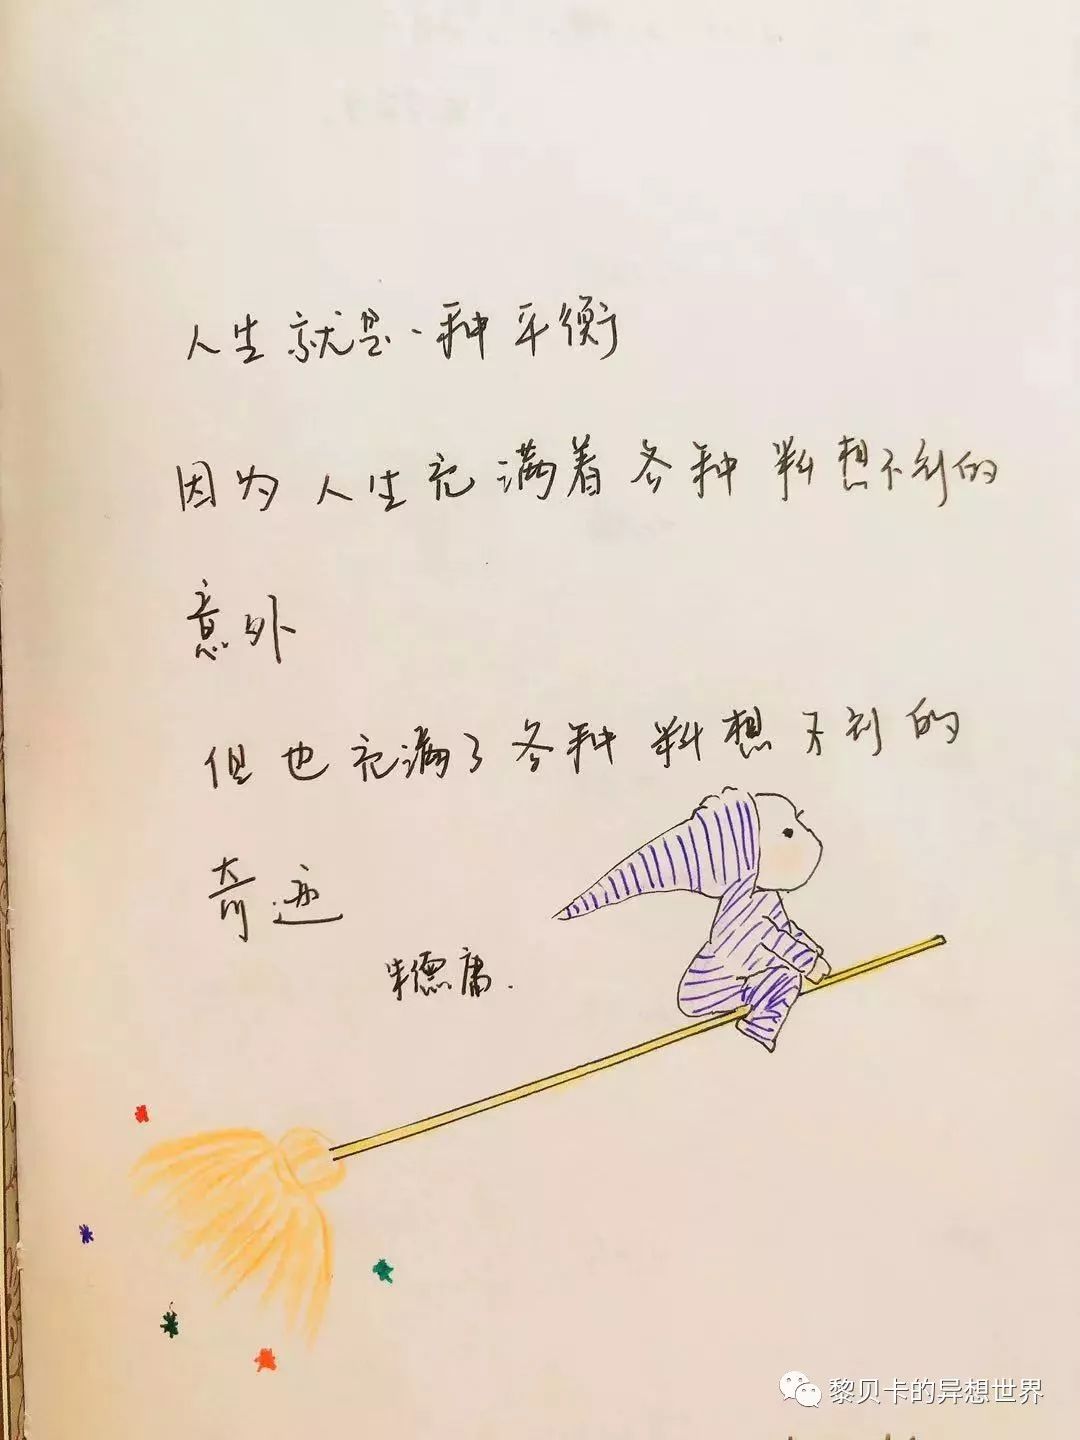 人生就是一种平衡
因为人生充满着各种料想不到的
意外
但也充满了各种料想不到的
奇迹
朱德庸.
黎贝卡的异想世界